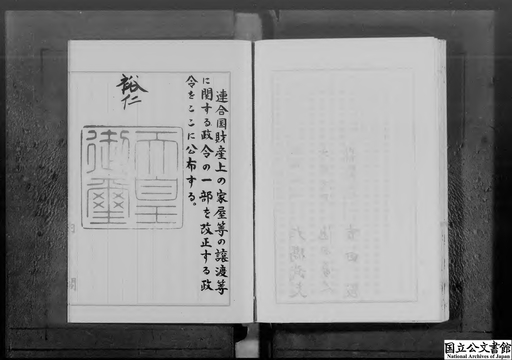 連合国財産上の家屋等の譲渡等
に関する政令の一部を改正する政
令をここに公布する。
裕仁
天皇
御璽
国立公文書館
National Archives of Japan